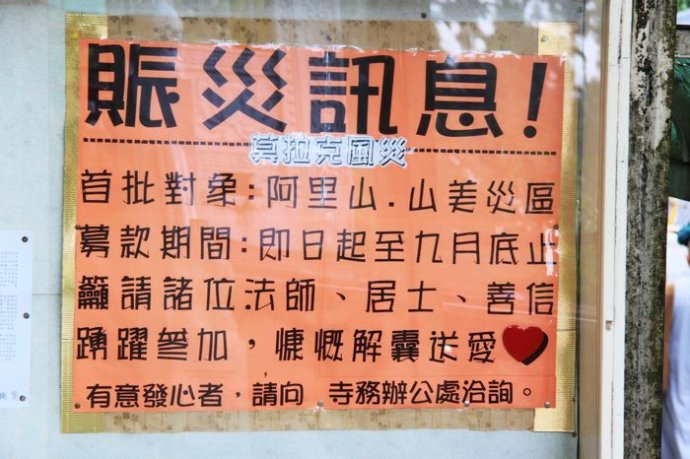 賑災訊息！
莫拉克風災
首批對象：阿里山．山美災區
募款期間：即日起至九月底止
籲請諸位法師、居士、善信
踴躍參加，慷慨解囊送愛
有意發心者，請向 寺務辦公處洽詢。